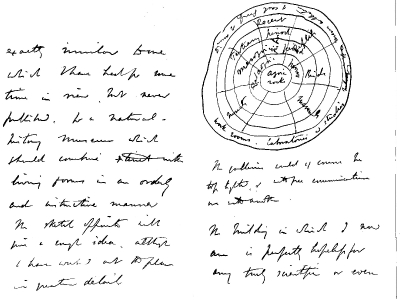 exactly similar one
which I have kept for some
time in view, but never
published, for a natural-
history museum which
should combine extinct with
living forms in an orderly
and instructive manner
The sketch opposite will
give a rough idea, altho'
I have worked out the plan
in greater detail
Recent
Tertiary period
azoic
rock
Birds
work rooms. Laboratories & studies
The galleries could of course be
top lighted, & with free communication
one with another.
The building in which I now
am is perfectly hopeless for
any truly scientific or even